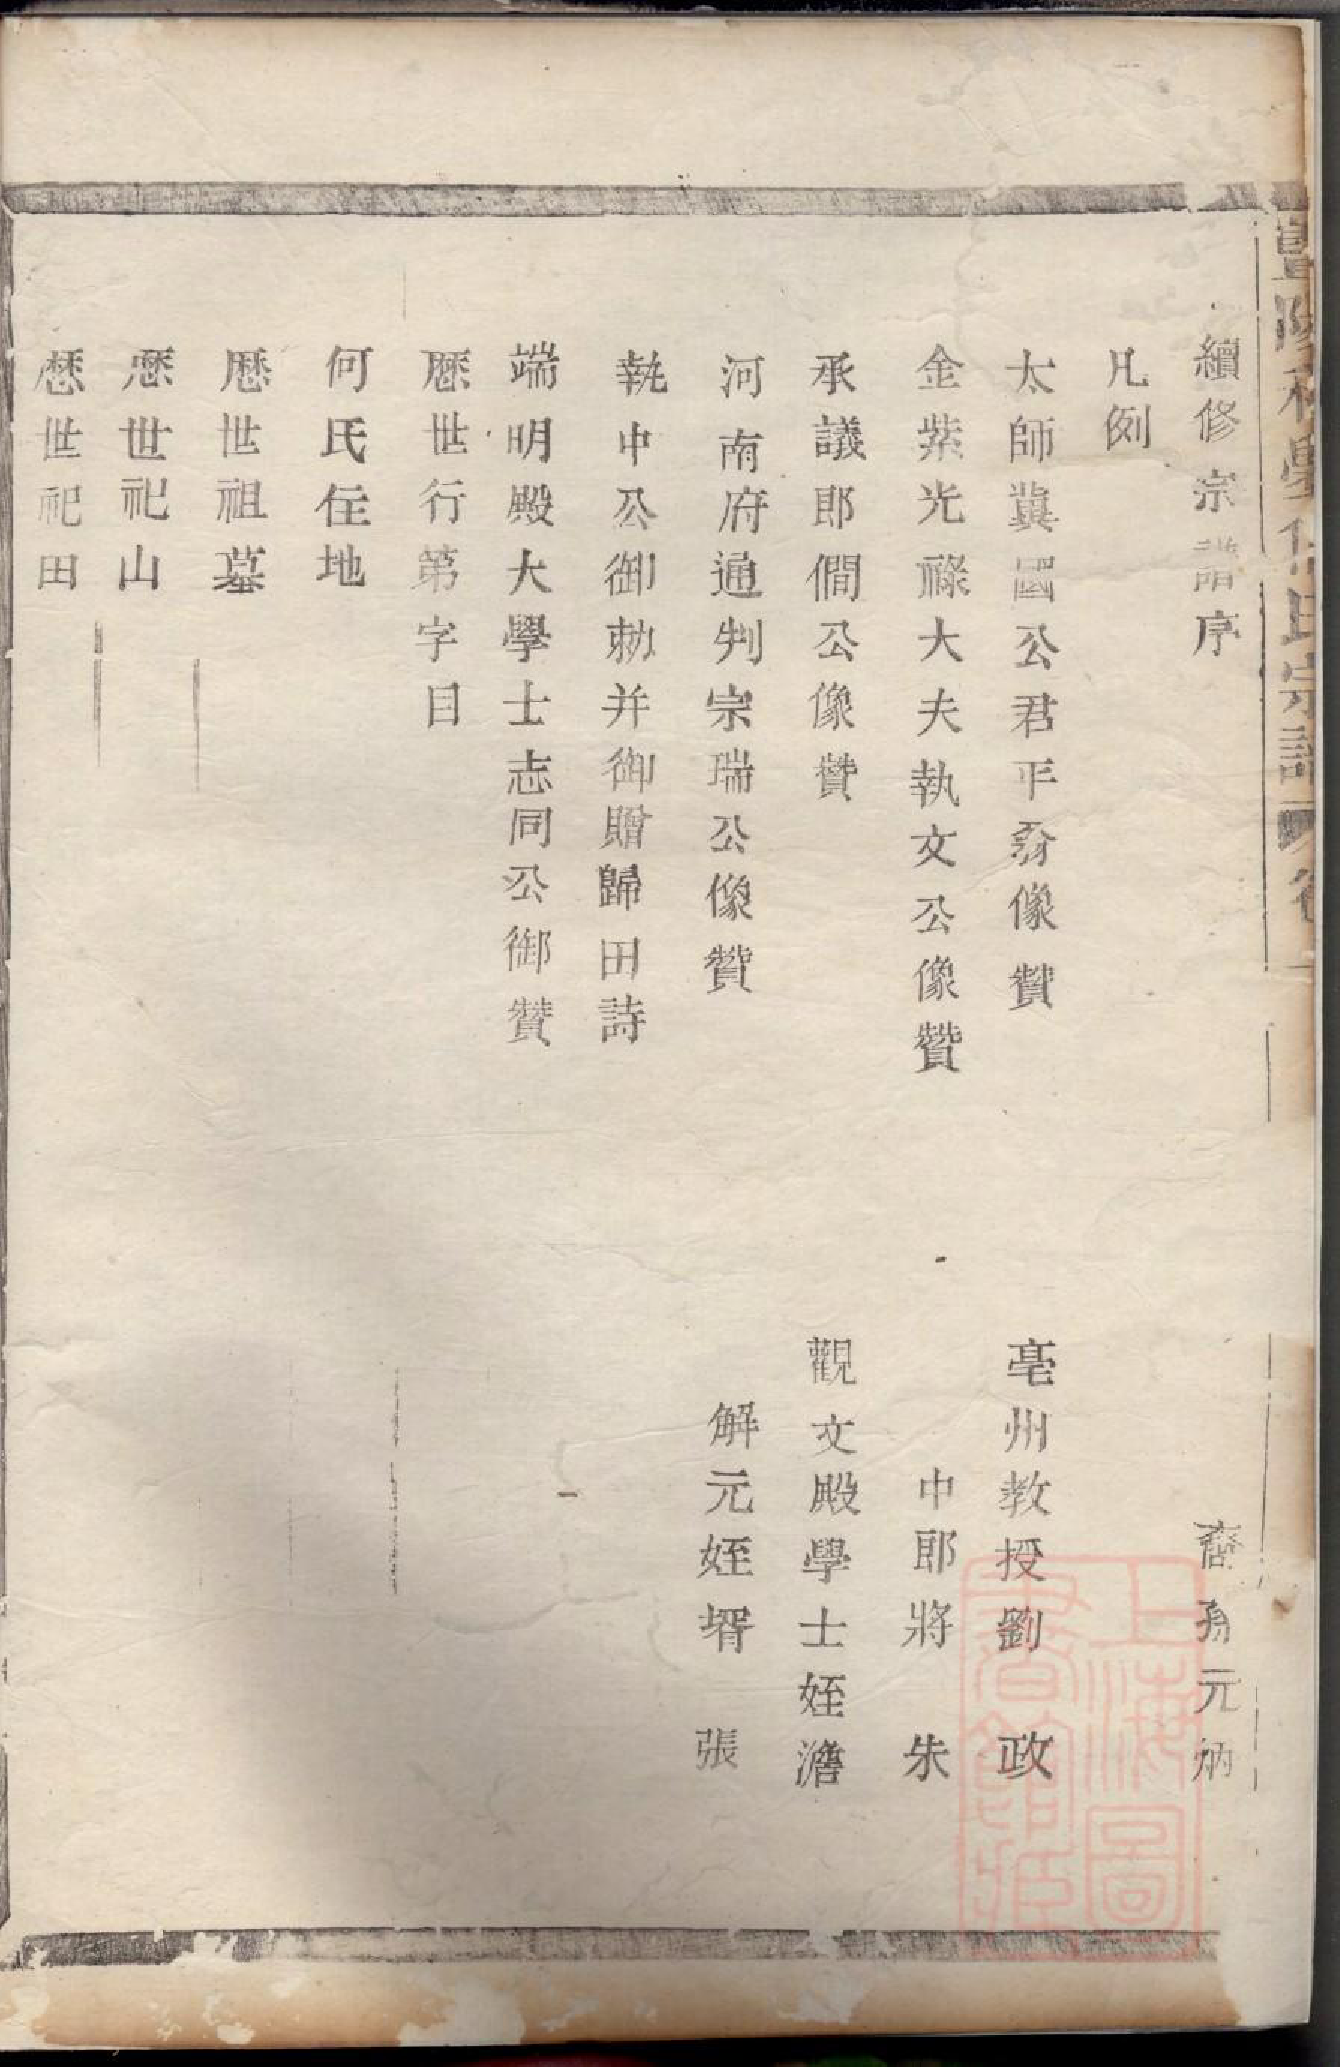 續修宗譜序 裔孫元炳
凡例
太師冀國公君平翁像贊 亳州教授劉政
金紫光祿大夫執文公像贊 中郎將朱
承議郎僩公像贊 觀文殿學士姪澹
河南府通判宗瑞公像贊 解元姪壻張
執中公御勅并御贈歸田詩
端明殿大學士志同公御贊
歷世行第字目
何氏住地
歷世祖墓
歷世祀山
歷世祀田
上海圖書館藏